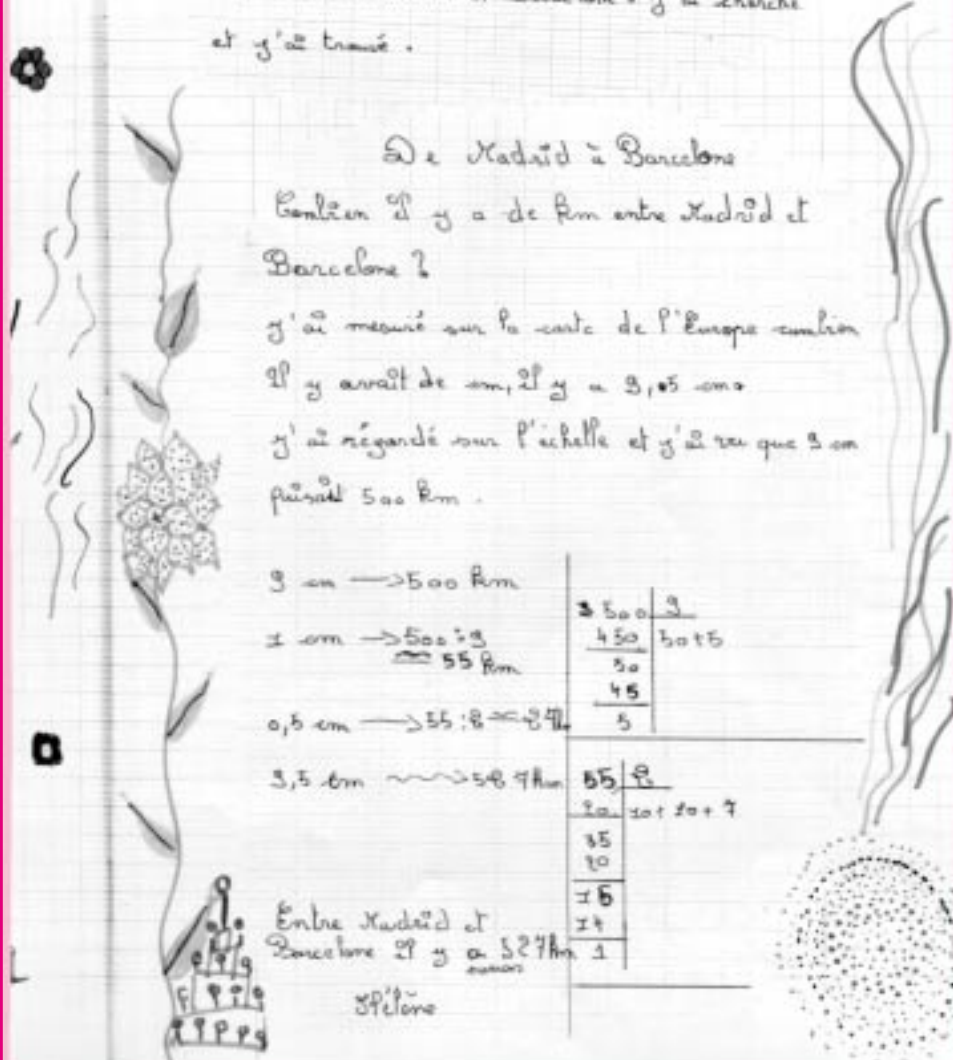 et j'ai trouvé.
De Madrid à Barcelone
Combien il y a de km entre Madrid et
Barcelone ?
j'ai mesuré sur la carte de l'Europe combien
il y avait de cm, il y a 9,5 cm.
j'ai régardé sur l'échelle et j'ai vu que 9 cm
faisait 500 km.
9 cm → 500 km
1 cm → 500 : 9
≈ 55 km
0,5 cm → 55 : 2 ≈ 27
9,5 cm → 527 km
500 | 9
450 | 50 + 5
50
45
5
55 | 2
20 | 10 + 10 + 7
35
20
15
14
1
Entre Madrid et
Barcelone il y a 527 km
Hélène